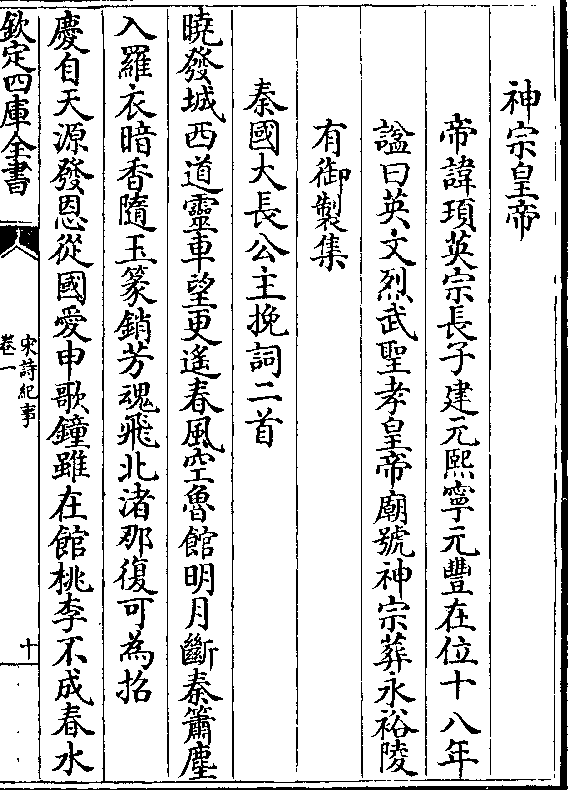 神宗皇帝
帝諱頊英宗長子建元熙寧元豐在位十八年
諡曰英文烈武聖孝皇帝廟號神宗葬永裕陵
有御製集
秦國大長公主挽詞二首
曉發城西道靈車望更遙春風空魯館明月斷秦簫塵
入羅衣暗香隨玉篆銷芳魂飛北渚那復可為招
慶自天源發恩從國愛申歌鐘雖在館桃李不成春水
欽定四庫全書
宋詩紀事
卷一
十